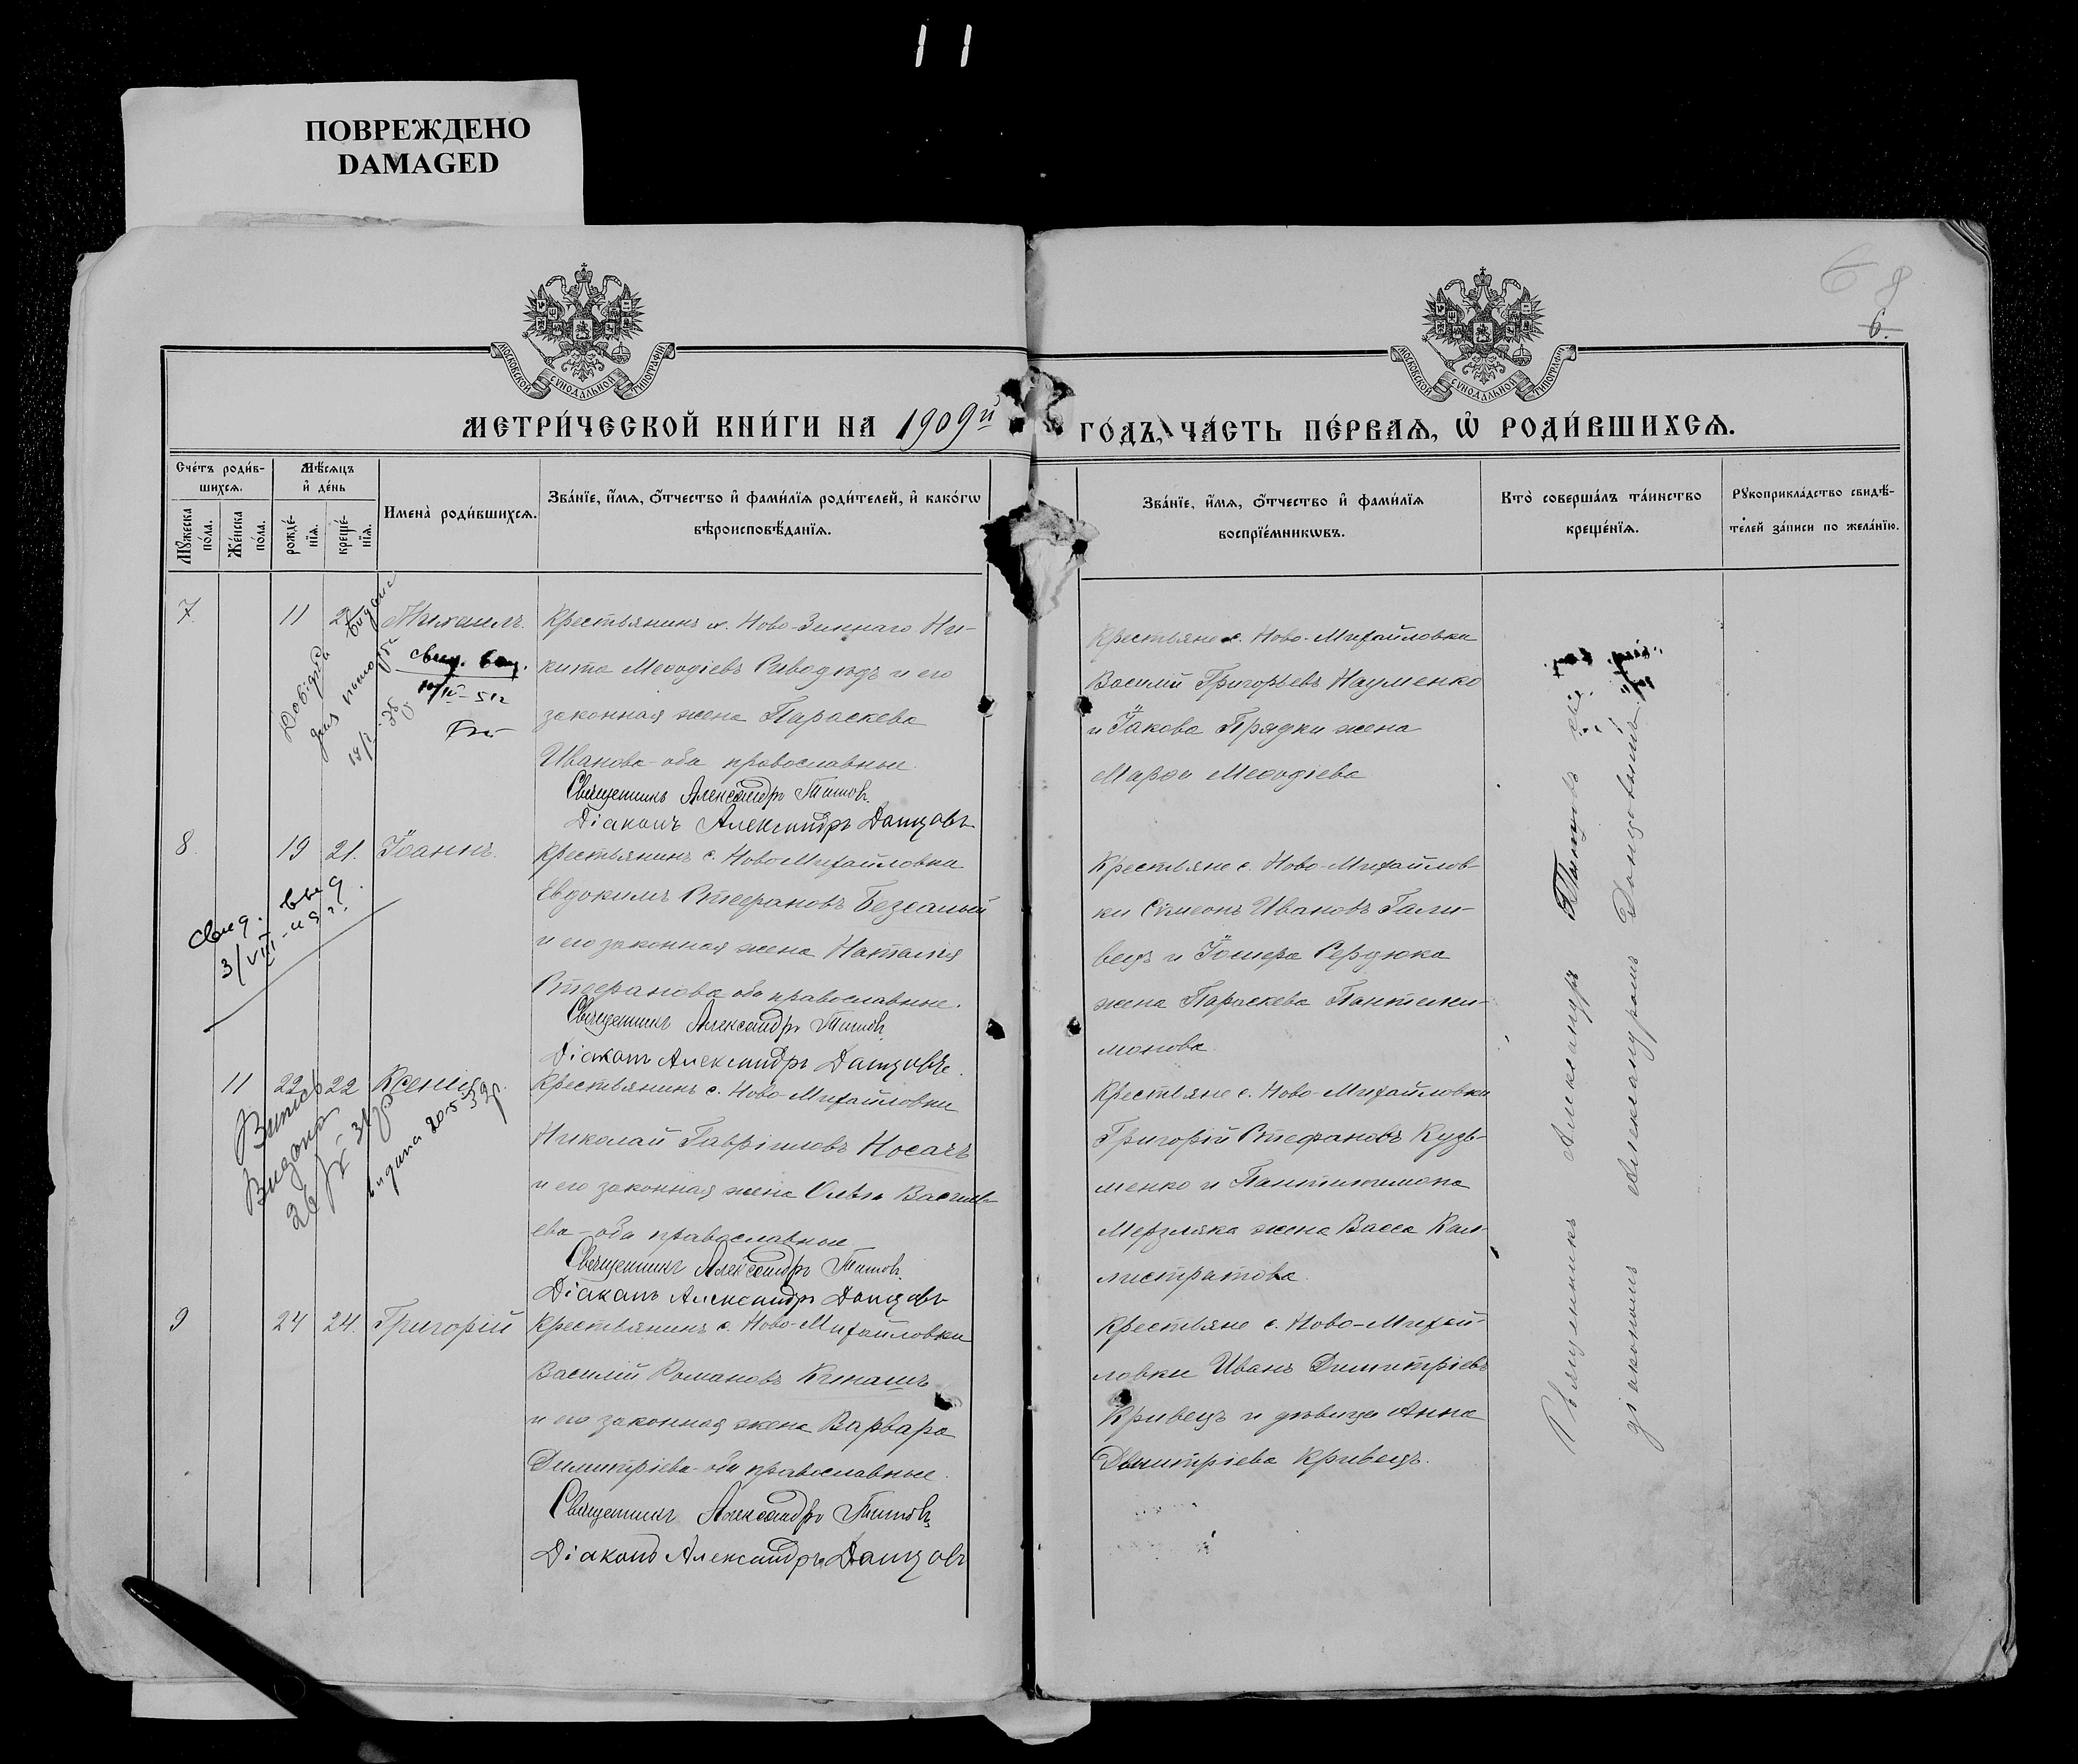 11
ПОВРЕЖДЕНО
DAMAGED
6 8
6.
МОСКОВСКОЙ СѴНОДАЛЬНОЙ ТИПОГРАФІИ
МОСКОВСКОЙ СѴНОДАЛЬНОЙ ТИПОГРАФІИ
МЕТРИ́ЧЕСКОЙ КНИ́ГИ НА 1909й ГО́ДЪ, ЧА́СТЬ ПЕ́РВАѦ, Ѽ РОДИ́ВШИХСѦ.
Сче́тъ роди́в-
шихсѧ.
Мꙋ́жеска по́ла.
Же́нска по́ла.
Мѣ́сѧцъ
и҆ де́нь
рожде́-
нїѧ.
креще́-
нїѧ.
Имена̀ роди́вшихсѧ.
Зва́нїе, и҆́мѧ, ѻ҆́тчество и҆ фами́лїѧ роди́телей, и҆ како́гѡ
вѣроисповѣ́данїѧ.
Зва́нїе, и҆́мѧ, ѻ҆́тчество и҆ фами́лїѧ
воспрїе́мникѡвъ.
Кто̀ соверша́лъ та́инство
креще́нїѧ.
Рꙋкоприкла́дство свидѣ́-
телей за́писи по жела́нїю.
7. 11 Михаилъ.
Крестьянинъ х. Ново-Зиннаго Ни-
кита Меѳодіевъ и его
законная жена Параскева
Иванова - оба православные.
Священникъ Александръ Титовъ.
Діаконъ Александръ Донцовъ.
Крестьяне с. Ново-Михайловки
Василий Григорьевъ Науменко
и Іакова Прядки жена
Марѳа Меѳодіева
8. 19 21. Іоаннъ.
Крестьянинъ с. НовоМихайловка
Евдокимъ Стефановъ
и его законная жена Наталия
Стефанова оба православные.
Священникъ Александръ Титовъ
Діаконъ Александръ Донцовъ.
Крестьяне с. Ново-Михайлов-
ки Сѵмеонъ Ивановъ Гали-
вецъ и Сердюка
жена Параскева Пантелеи-
монова.
свид. выд.
11 22 22 Ксенія.
Крестьянинъ с. Ново-Михайловки
Николай Гавріиловъ Носачъ
и его законная жена Ольга Василь-
ева - оба православные
Священникъ Александръ Титовъ.
Діаконъ Александръ Донцовъ
Крестьяне с. Ново-Михайловки
Григорій Стефановъ Кузь-
менко и
Мерзляка жена Васса Кал-
листратова.
9 24 24. Григорій
Крестьянинъ с. Ново-Михайловки
Василій Романовъ Киташъ
и его законная жена Варвара
Димитріева - оба православные.
Священникъ Александръ Титовъ
Діаконъ Александръ Донцовъ
Крестьяне с. Ново-Михай-
ловки Иванъ Димитріевъ
Кривецъ и дѣвица Анна
Димитріева Кривецъ.
Священникъ Александръ Титовъ съ
діакономъ Александромъ Донцовымъ.